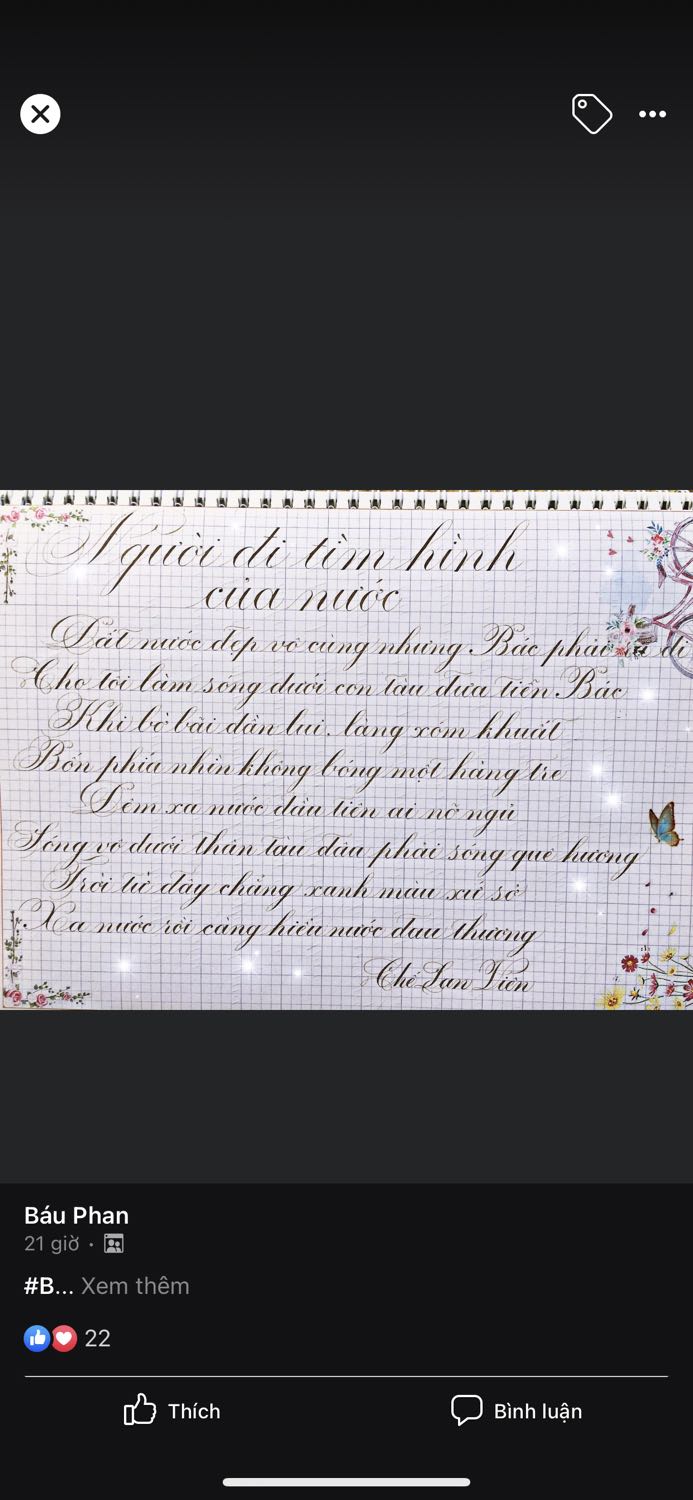 Người đi tìm hình
của nước
Đất nước đẹp vô cùng nhưng Bác phải ra đi
Cho tôi làm sóng dưới con tàu đưa tiễn Bác
Khi bờ bãi dần lui. làng xóm khuất
Bốn phía nhìn không bóng một hàng tre
Đêm xa nước đầu tiên ai nỡ ngủ
Sóng vỗ dưới thân tàu đâu phải sóng quê hương
Trời từ đây chẳng xanh màu xứ sở
Xa nước rồi càng hiểu nước đau thương
Chế Lan Viên
Báu Phan
21 giờ ·
#B... Xem thêm
22
Thích
Bình luận